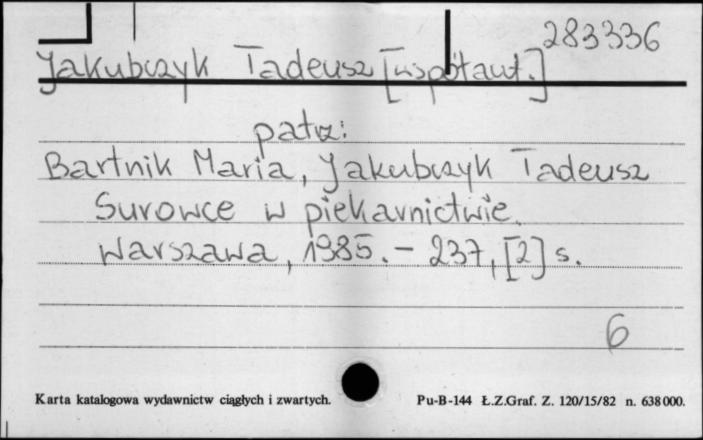 283336
Jakubczyk Tadeusz [współaut.]
patrz:
Bartnik Maria, Jakubczyk Tadeusz
Surowce w piekarnictwie.
Warszawa, 1985. – 237, [2] s.
6
Karta katalogowa wydawnictw ciągłych i zwartych. Pu-B-144 Ł.Z.Graf. Z. 120/15/82 n. 638000.